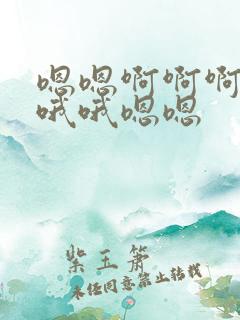 嗯嗯啊啊啊
哦哦嗯嗯
紫玉箫
未经同意禁止转载